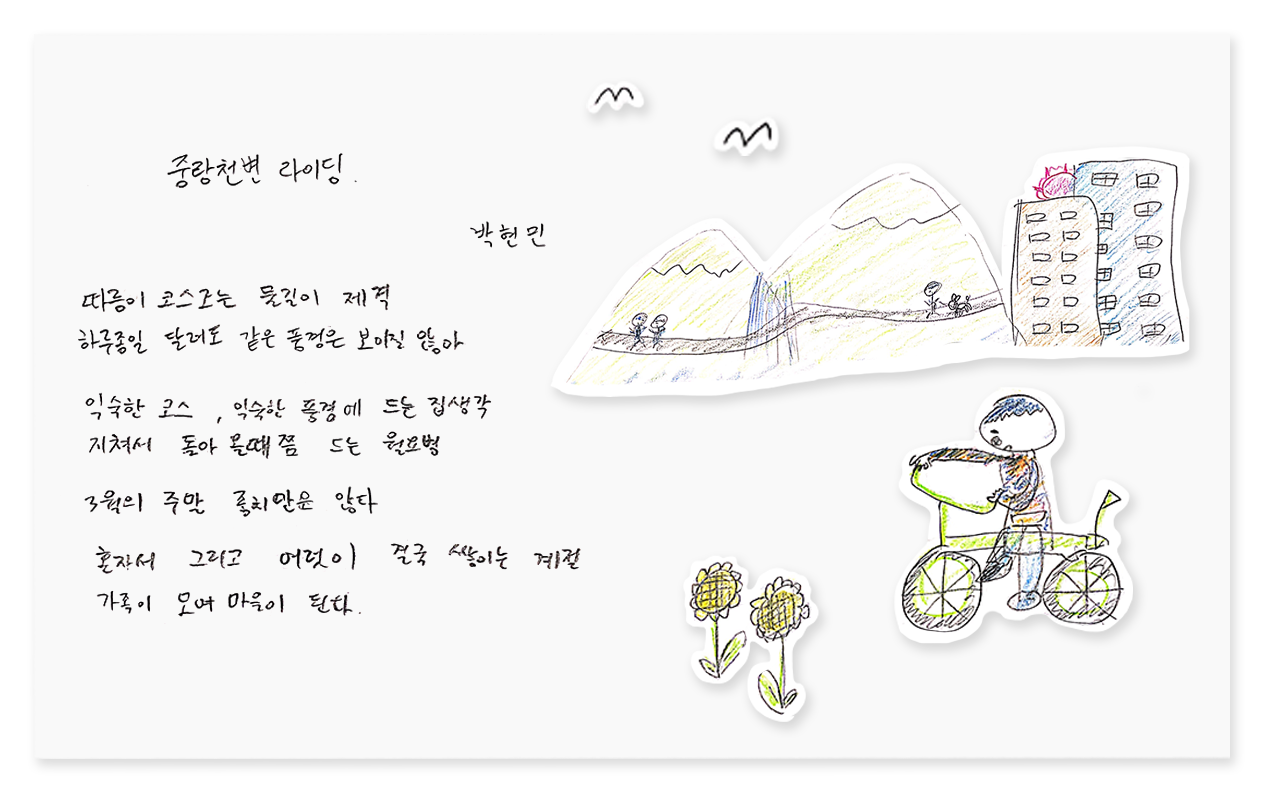 중랑천변 라이딩.
박현민
따릉이 코스로는 물길이 제격
하루종일 달려도 같은 풍경은 보이질 않아
익숙한 코스, 익숙한 풍경에 드는 집생각
지쳐서 돌아 올때쯤 드는 월요병
3월의 주말 놓치만은 않다
혼자서 그리고 여럿이 결국 쌓이는 계절
가족이 모여 마을이 된다.